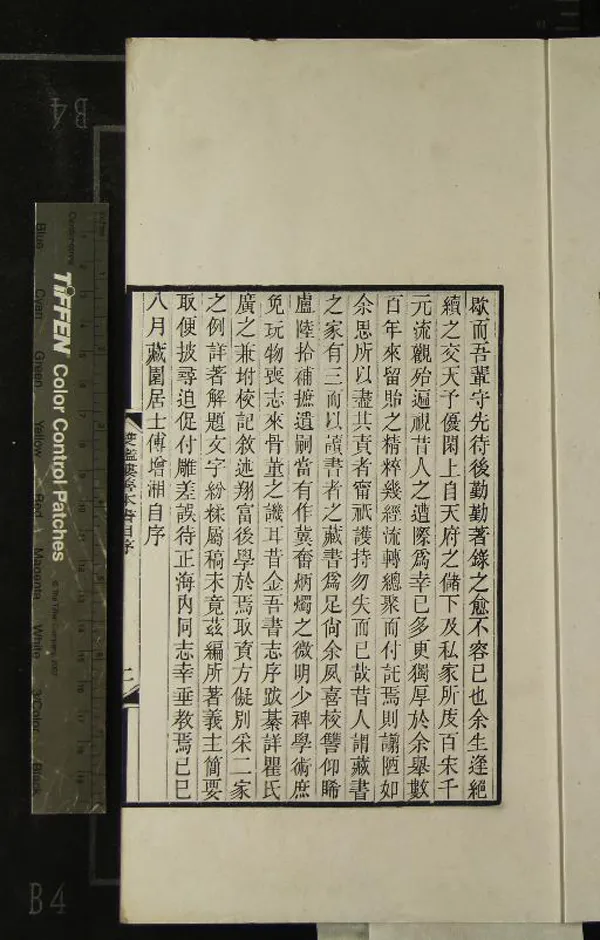 歇而吾輩守先待後勤勤著錄之愈不容已也余生逢絕
續之交天予優閑上自天府之儲下及私家所庋百宋千
元流觀殆遍視昔人之遭際爲幸已多更獨厚於余舉數
百年來留貽之精粹幾經流轉總聚而付託焉則謭陋如
余思所以盡其責者甯祇護持勿失而已哉昔人謂藏書
之家有三而以讀書者之藏書爲足尙余夙喜校讐仰睎
盧陸拾補摭遺嗣當有作冀奮炳燭之微明少裨學術庶
免玩物喪志來骨董之譏耳昔金吾書志序跋綦詳瞿氏
廣之兼坿校記敘述翔富後學於焉取資方儗別采二家
之例詳著解題文字紛糅屬稿未竟茲編所著義主簡要
取便披尋迫促付雕差誤待正海內同志幸垂教焉己巳
八月藏園居士傅增湘自序
雙鑑樓善本書目序
二
TIFFEN Color Control Patches
© The Tiffen Company, 2007
Centimetres
Inches
Blue
Cyan
Green
Yellow
Red
Magenta
White
3/Color
Black
B4
B4